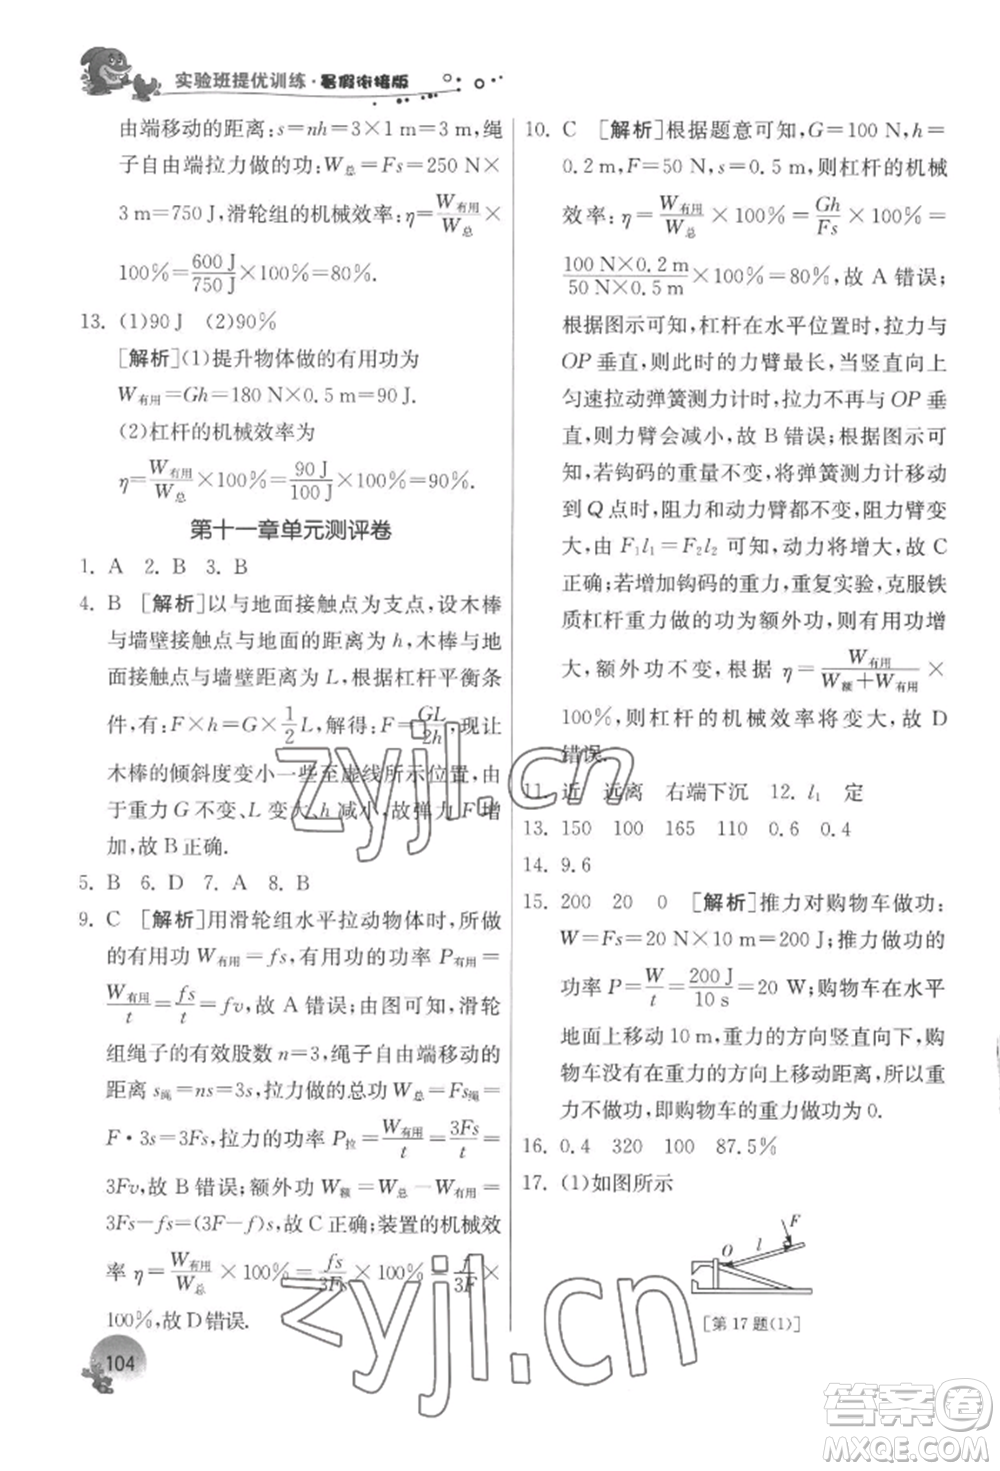 实验班提优训练·暑假衔接版
由端移动的距离:s=nh=3×1 m=3 m,绳
子自由端拉力做的功:W总=Fs=250 N×
3 m=750 J,滑轮组的机械效率:η=W有用/W总×
100%=600 J/750 J×100%=80%.
13. (1)90 J (2)90%
[解析](1)提升物体做的有用功为
W有用=Gh=180 N×0.5 m=90 J.
(2)杠杆的机械效率为
η=W有用/W总×100%=90 J/100 J×100%=90%.
第十一章单元测评卷
1. A 2. B 3. B
4. B [解析]以与地面接触点为支点,设木棒
与墙壁接触点与地面的距离为 h,木棒与地
面接触点与墙壁距离为 L,根据杠杆平衡条
件,有:F×h=G×1/2 L,解得:F=GL/2h,现让
木棒的倾斜度变小一些至虚线所示位置,由
于重力 G 不变、L 变大、h 减小,故弹力 F 增
加,故 B 正确.
5. B 6. D 7. A 8. B
9. C [解析]用滑轮组水平拉动物体时,所做
的有用功 W有用=fs,有用功的功率 P有用=
W有用/t=fs/t=fv,故 A 错误;由图可知,滑轮
组绳子的有效股数 n=3,绳子自由端移动的
距离 s绳=ns=3s,拉力做的总功 W总=Fs绳=
F·3s=3Fs,拉力的功率 P拉=W总/t=3Fs/t=
3Fv,故 B 错误;额外功 W额=W总-W有用=
3Fs-fs=(3F-f)s,故 C 正确;装置的机械效
率 η=W有用/W总×100%=fs/3Fs×100%=f/3F×
100%,故 D 错误.
104
10. C [解析]根据题意可知,G=100 N,h=
0.2 m,F=50 N,s=0.5 m,则杠杆的机械
效率:η=W有用/W总×100%=Gh/Fs×100%=
100 N×0.2 m/50 N×0.5 m×100%=80%,故 A 错误;
根据图示可知,杠杆在水平位置时,拉力与
OP 垂直,则此时的力臂最大,当竖直向上
匀速拉动弹簧测力计时,拉力不再与 OP 垂
直,则力臂会减小,故 B 错误;根据图示可
知,若钩码的重量不变,将弹簧测力计移动
到 Q 点时,阻力和动力臂都不变,阻力臂变
大,由 F1l1=F2l2 可知,动力将增大,故 C
正确;若增加钩码的重力,重复实验,克服铁
质杠杆重力做的功为额外功,则有用功增
大,额外功不变,根据 η=W有用/W额+W有用×
100%,则杠杆的机械效率将变大,故 D
错误.
11. 近 远离 右端下沉 12. l1 定
13. 150 100 165 110 0.6 0.4
14. 9.6
15. 200 20 0 [解析]推力对购物车做功:
W=Fs=20 N×10 m=200 J;推力做功的
功率 P=W/t=200 J/10 s=20 W;购物车在水平
地面上移动 10 m,重力的方向竖直向下,购
物车没有在重力的方向上移动距离,所以重
力不做功,即购物车的重力做功为 0.
16. 0.4 320 100 87.5%
17. (1)如图所示
F
O l
[第 17 题(1)]
zyjl.cn
zyjl.cn
答案圈
MXQE.COM